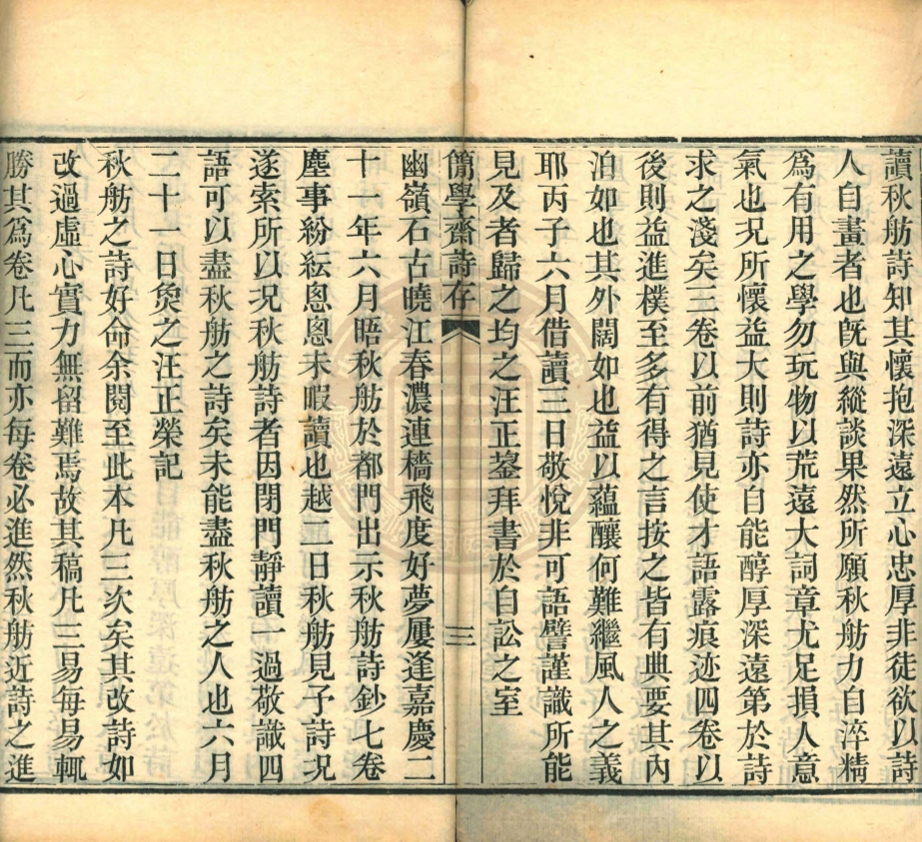 讀秋舫詩知其懷抱深遠立心忠厚非徒欲以詩
人自畫者也旣與縱談果然所願秋舫力自淬精
爲有用之學勿玩物以荒遠大詞章尤足損人意
氣也况所懷益大則詩亦自能醇厚深遠第於詩
求之淺矣三卷以前猶見使才語露痕迹四卷以
後則益進樸至多有得之言按之皆有典要其內
泊如也其外闊如也益以蘊釀何難繼風人之義
耶丙子六月借讀三日敬悅非可語譬謹識所能
見及者歸之均之汪正鋆拜書於自訟之室
簡學齋詩存
三
幽嶺石古曉江春濃連檣飛度好夢屢逢嘉慶二
十一年六月晤秋舫於都門出示秋舫詩鈔七卷
塵事紛紜悤悤未暇讀也越二日秋舫見予詩况
遂索所以况秋舫詩者因閉門靜讀一過敬識四
語可以盡秋舫之詩矣未能盡秋舫之人也六月
二十一日奐之汪正榮記
秋舫之詩好命余閱至此本凡三次矣其改詩如
改過虛心實力無留難焉故其稿凡三易每易輒
勝其爲卷凡三而亦每卷必進然秋舫近詩之進